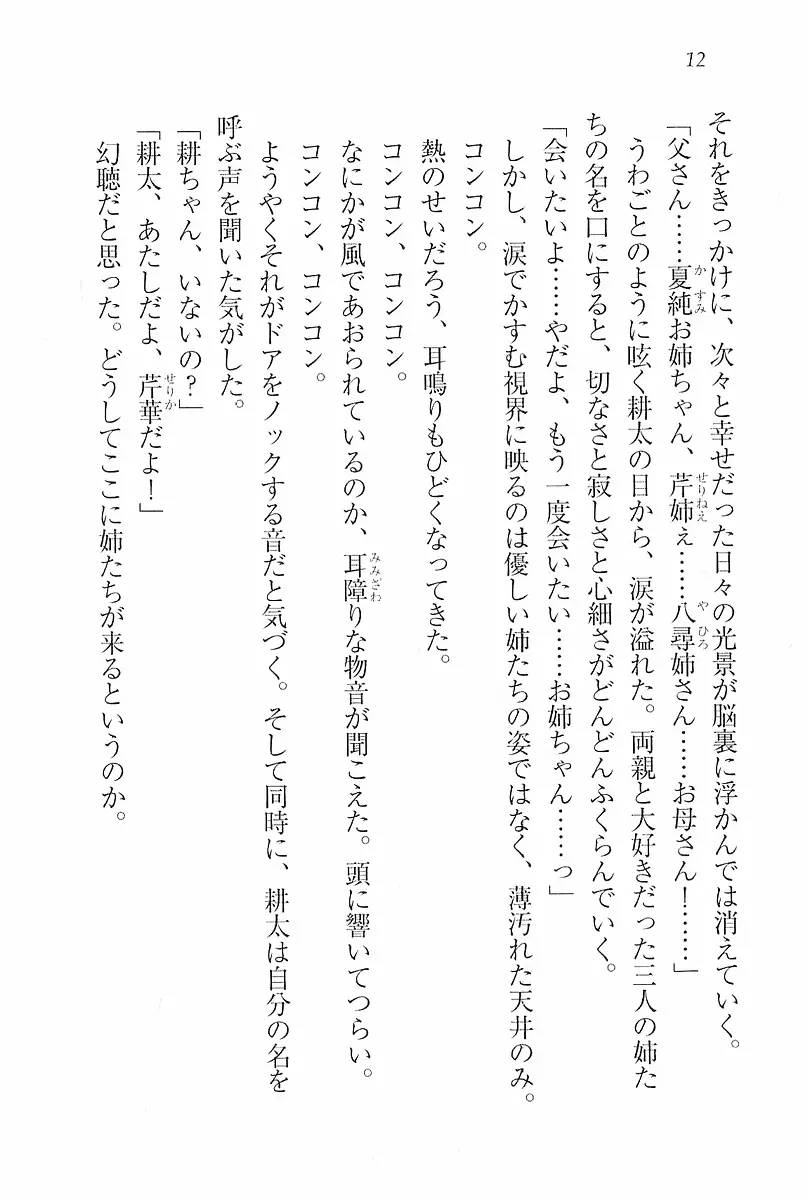 12
それをきっかけに、次々と幸せだった日々の光景が脳裏に浮かんでは消えていく。
「父さん……夏純お姉ちゃん、芹姉ぇ……八尋姉さん……お母さん！……」
うわごとのように呟く耕太の目から、涙が溢れた。両親と大好きだった三人の姉た
ちの名を口にすると、切なさと寂しさと心細さがどんどんふくらんでいく。
「会いたいよ……やだよ、もう一度会いたい……お姉ちゃん……っ」
しかし、涙でかすむ視界に映るのは優しい姉たちの姿ではなく、薄汚れた天井のみ。
コンコン。
熱のせいだろう、耳鳴りもひどくなってきた。
コンコン、コンコン。
なにかが風であおられているのか、耳障りな物音が聞こえた。頭に響いてつらい。
コンコン、コンコン。
ようやくそれがドアをノックする音だと気づく。そして同時に、耕太は自分の名を
呼ぶ声を聞いた気がした。
「耕ちゃん、いないの？」
「耕太、あたしだよ、芹華だよ！」
幻聴だと思った。どうしてここに姉たちが来るというのか。